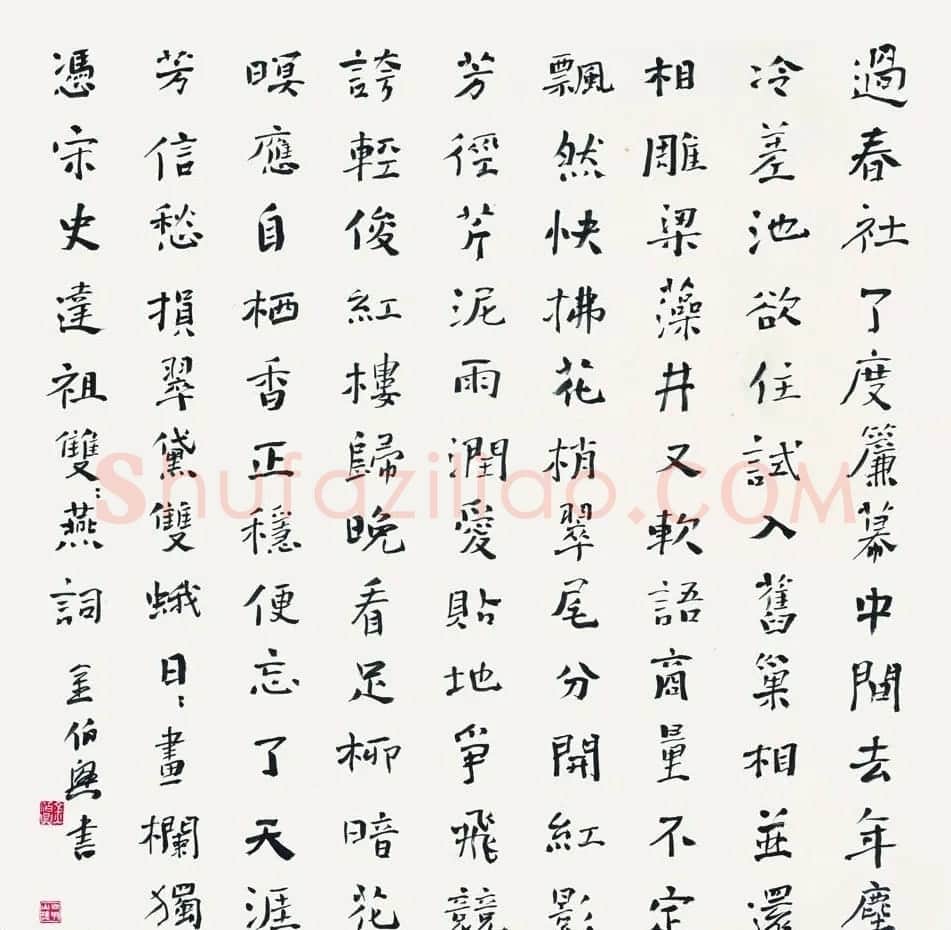 過春社了度簾幕中間去年塵
冷差池欲住試入舊巢相並還
相雕梁藻井又軟語商量不定
飄然快拂花梢翠尾分開紅影
芳徑芹泥雨潤愛貼地爭飛競
誇輕俊紅樓歸晚看足柳暗花
暝應自栖香正穩便忘了天涯
芳信愁損翠黛雙蛾日:畫欄獨
憑宋史達祖雙:燕詞 金伯興書
Shufaziliao.COM